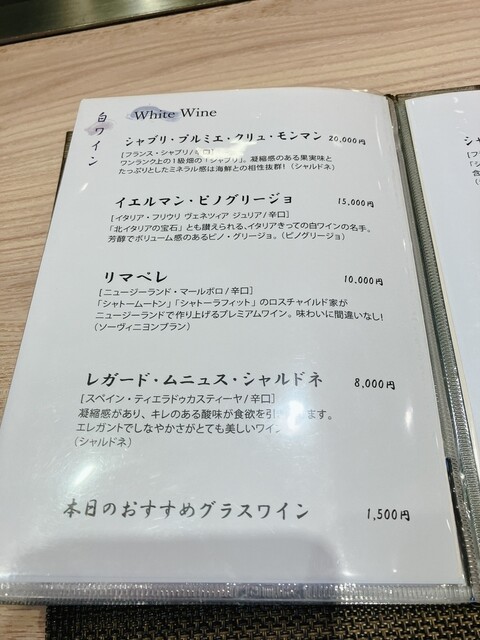 白ワイン
White Wine
シャブリ・プルミエ・クリュ・モンマン 20,000円
[フランス・シャブリ/辛口]
ワンランク上の1級畑の「シャブリ」。凝縮感のある果実味と
たっぷりとしたミネラル感は海鮮との相性抜群!(シャルドネ)
イエルマン・ピノグリージョ 15,000円
[イタリア・フリウリ ヴェネツィア ジュリア/辛口]
「北イタリアの宝石」とも讃えられる、イタリアきっての白ワインの名手。
芳醇でボリューム感のあるピノ・グリージョ。(ピノグリージョ)
リマペレ 10,000円
[ニュージーランド・マールボロ/辛口]
「シャトームートン」「シャトーラフィット」のロスチャイルド家が
ニュージーランドで作り上げるプレミアムワイン。味わいに間違いなし!
(ソーヴィニヨンブラン)
レガード・ムニュス・シャルドネ 8,000円
[スペイン・ティエラドゥカスティーヤ/辛口]
凝縮感があり、キレのある酸味が食欲を引 ます。
エレガントでしなやかさがとても美しいワイン
(シャルドネ)
本日のおすすめグラスワイン 1,500円